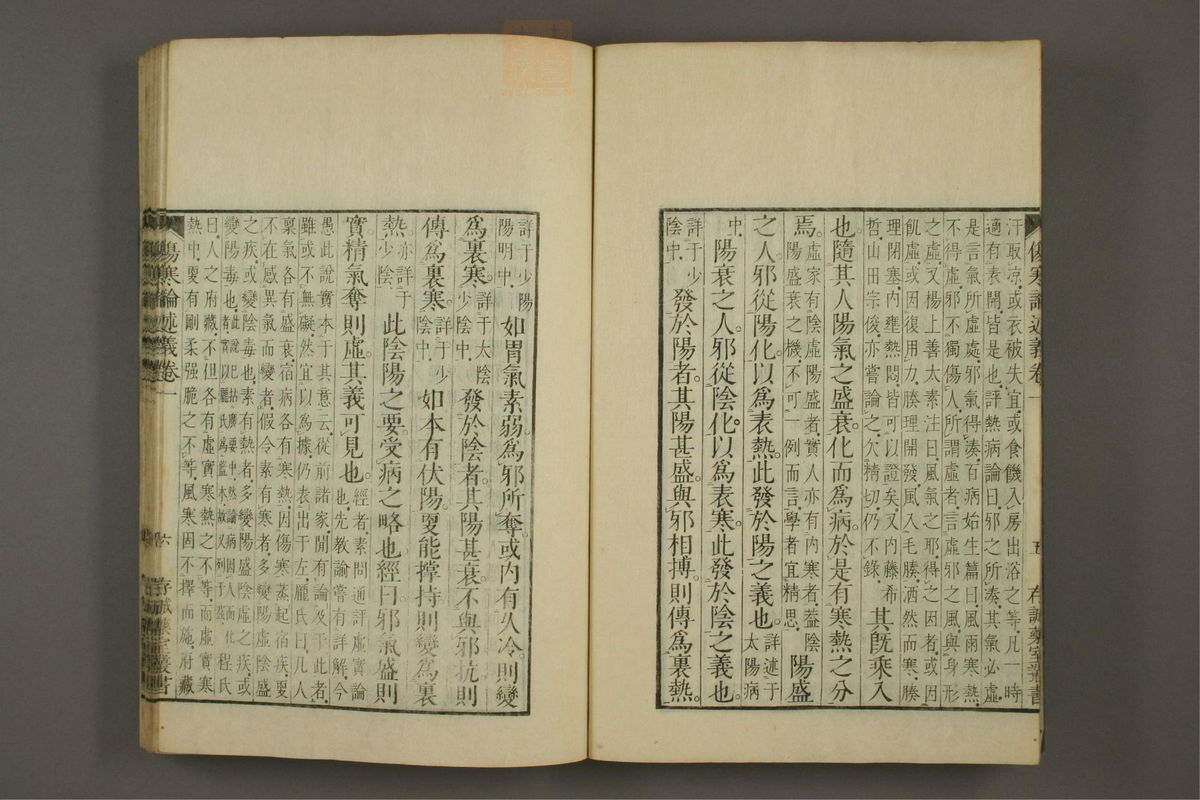 汗取凉或衣被失宜或食饑入房出浴之等凡一時
適有表開皆是也評熱病論曰邪之所湊其氣必虛
是言氣所虛處邪氣得湊百病始生篇曰風雨寒熱
不得虛邪不獨傷人所謂虛者言虛邪之風與身形
之虛又楊上善太素注曰風氣之邪得之因者或因
飢虛或因復用力腠理開發風入毛腠洒然而寒腠
理閉塞內壅熱悶皆可以證矣又內藤希
哲山田宗俊亦嘗論之欠精切仍不錄
其既乘入
也隨其人陽氣之盛衰化而為病於是有寒熱之分
焉
虛家有陰虛陽盛者實人亦有內寒者蓋陰
陽盛衰之機不可一例而言學者宜精思
陽盛
之人邪從陽化以為表熱此發於陽之義也
詳述于
太陽病
中
陽衰之人邪從陰化以為表寒此發於陰之義也
詳于少
陰中
發於陽者其陽甚盛與邪相搏則傳為裏熱
傷寒論述義卷一
五
存誠藥室叢書
詳于少陽
陽明中
如胃氣素弱為邪所奪或內有久冷則變
為裏寒
詳于太陰
少陰中
發於陰者其陽甚衰不與邪抗則
傳為裏寒
詳于少
陰中
如本有伏陽更能撐持則變為裏
熱
亦詳于
少陰
此陰陽之要受病之略也經曰邪氣盛則
實精氣奪則虛其義可見也
經者素問通評虛實論
也先教諭嘗有詳解今
愚此說實本于其意云從前諸家間有論及于此者
雖或不無礙然宜以為據仍表出于左龐氏曰凡人
稟氣各有盛衰宿病各有寒熱因傷寒蒸起宿疾更
不在感異氣而變者假令素有寒者多變陽虛陰盛
之疾或變陰毒也素有熱者多變陽盛陰虛之疾或
變陽毒也
此說已括廣要中然論病因人而化
者實以龐氏為藍本故又列于茲
程氏
曰人之府藏不但各有虛實寒熱之不等而虛實寒
熱中更有剛柔强脆之不等風寒固不擇而施府藏
傷寒論述義卷一
六
存誠藥室叢書